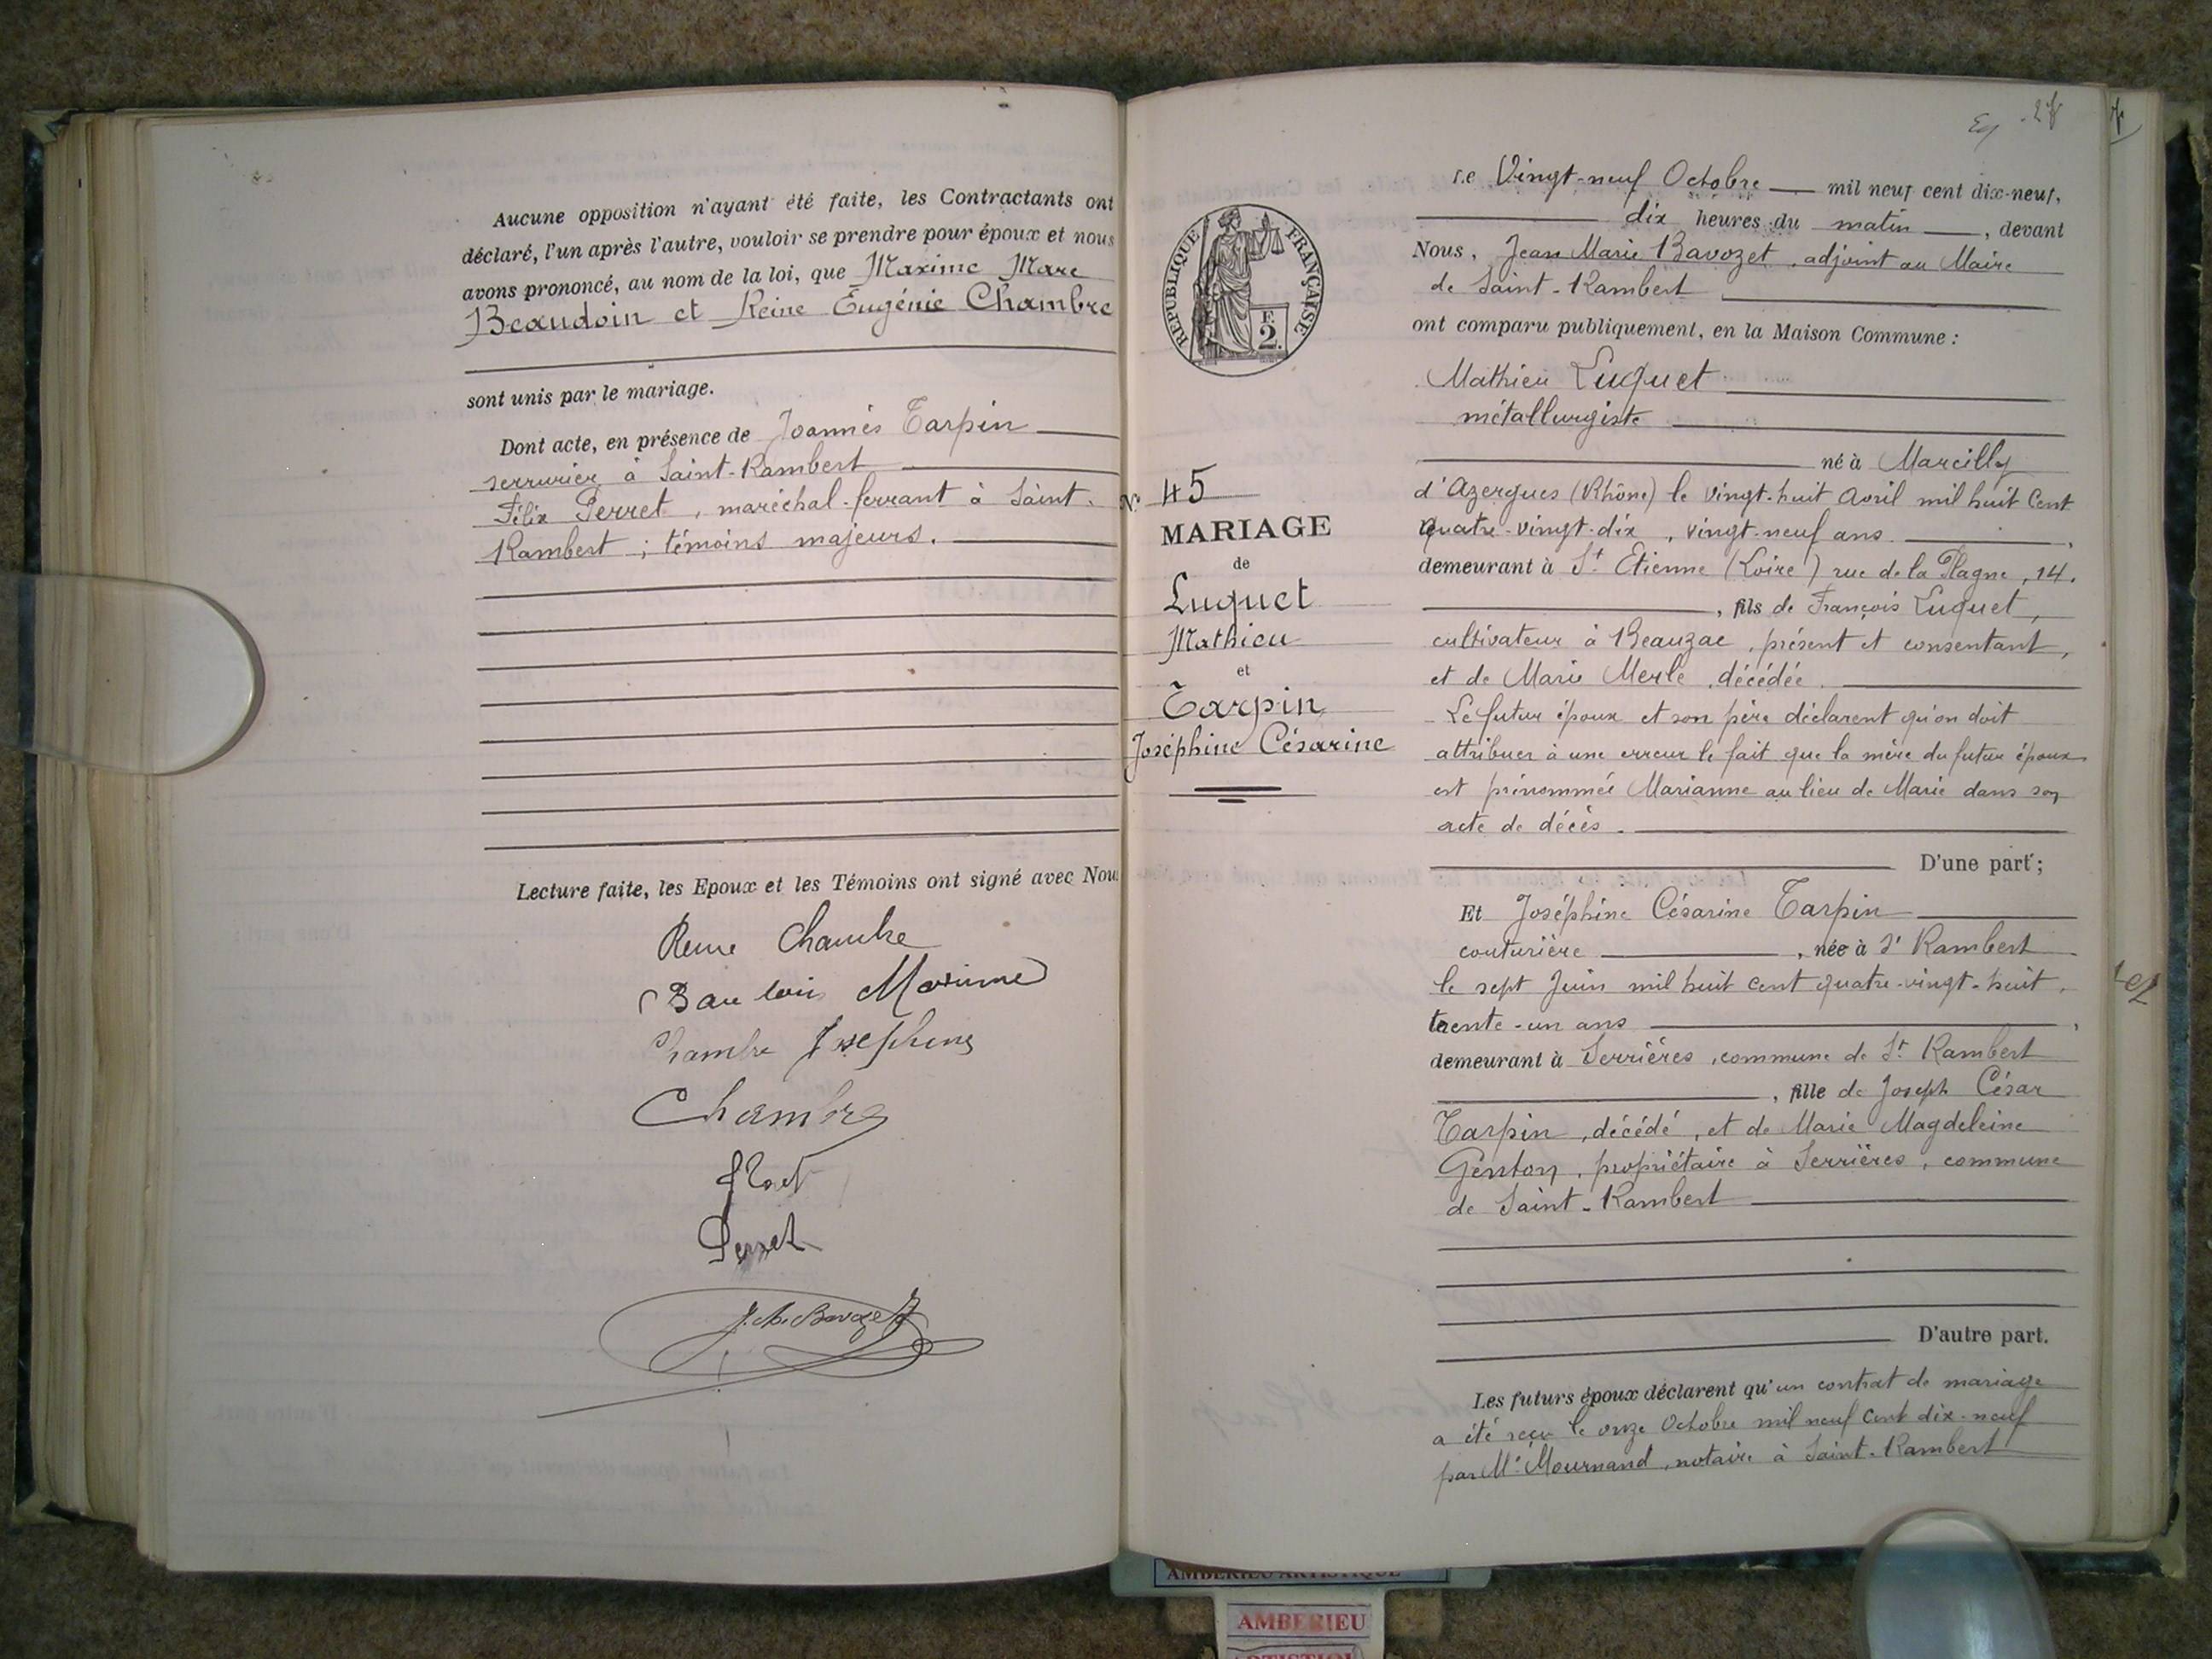 Aucune opposition n'ayant été faite, les Contractants ont
déclaré, l'un après l'autre, vouloir se prendre pour époux et nous
avons prononcé, au nom de la loi, que Maxime Marc
Beaudoin et Reine Eugénie Chambre
sont unis par le mariage.
Dont acte, en présence de Joannès Tarpin
serrurier à Saint-Rambert
Félix Perret, maréchal-ferrant à Saint-
Rambert ; témoins majeurs.
Lecture faite, les Epoux et les Témoins ont signé avec Nou
Reine Chambre
Maxime
Chambre Josephine
Chambre
Perret
J. M. Bavozet
RÉPUBLIQUE FRANÇAISE
F.
2.
N° 45
MARIAGE
de
Luquet
Mathieu
et
Tarpin
Joséphine Césarine
Le Vingt-neuf Octobre mil neuf cent dix-neuf,
dix heures du matin, devant
Nous, Jean Marie Bavozet, adjoint au Maire
de Saint-Rambert
ont comparu publiquement, en la Maison Commune :
Mathieu Luquet
métallurgiste
né à Marcilly
d'Azergues (Rhône) le vingt-huit Avril mil huit cent
quatre-vingt-dix, vingt-neuf ans,
demeurant à St Etienne (Loire) rue de la Plagne, 14.
, fils de François Luquet,
cultivateur à Beauzac, présent et consentant,
et de Marie Merle, décédée.
Le futur époux et son père déclarent qu'on doit
attribuer à une erreur le fait que la mère du futur époux
est prénommée Marianne au lieu de Marie dans son
acte de décès.
D'une part ;
Et Joséphine Césarine Tarpin
couturière, née à St Rambert
le sept Juin mil huit cent quatre-vingt-huit,
trente-un ans,
demeurant à Serrières, commune de St Rambert
, fille de Joseph César
Tarpin, décédé, et de Marie Magdeleine
Genton, propriétaire à Serrières, commune
de Saint-Rambert
D'autre part.
Les futurs époux déclarent qu'un contrat de mariage
a été reçu le onze Octobre mil neuf cent dix-neuf
par Me Mournand, notaire à Saint-Rambert
AMBERIEU ARTISTIQUE
AMBERIEU